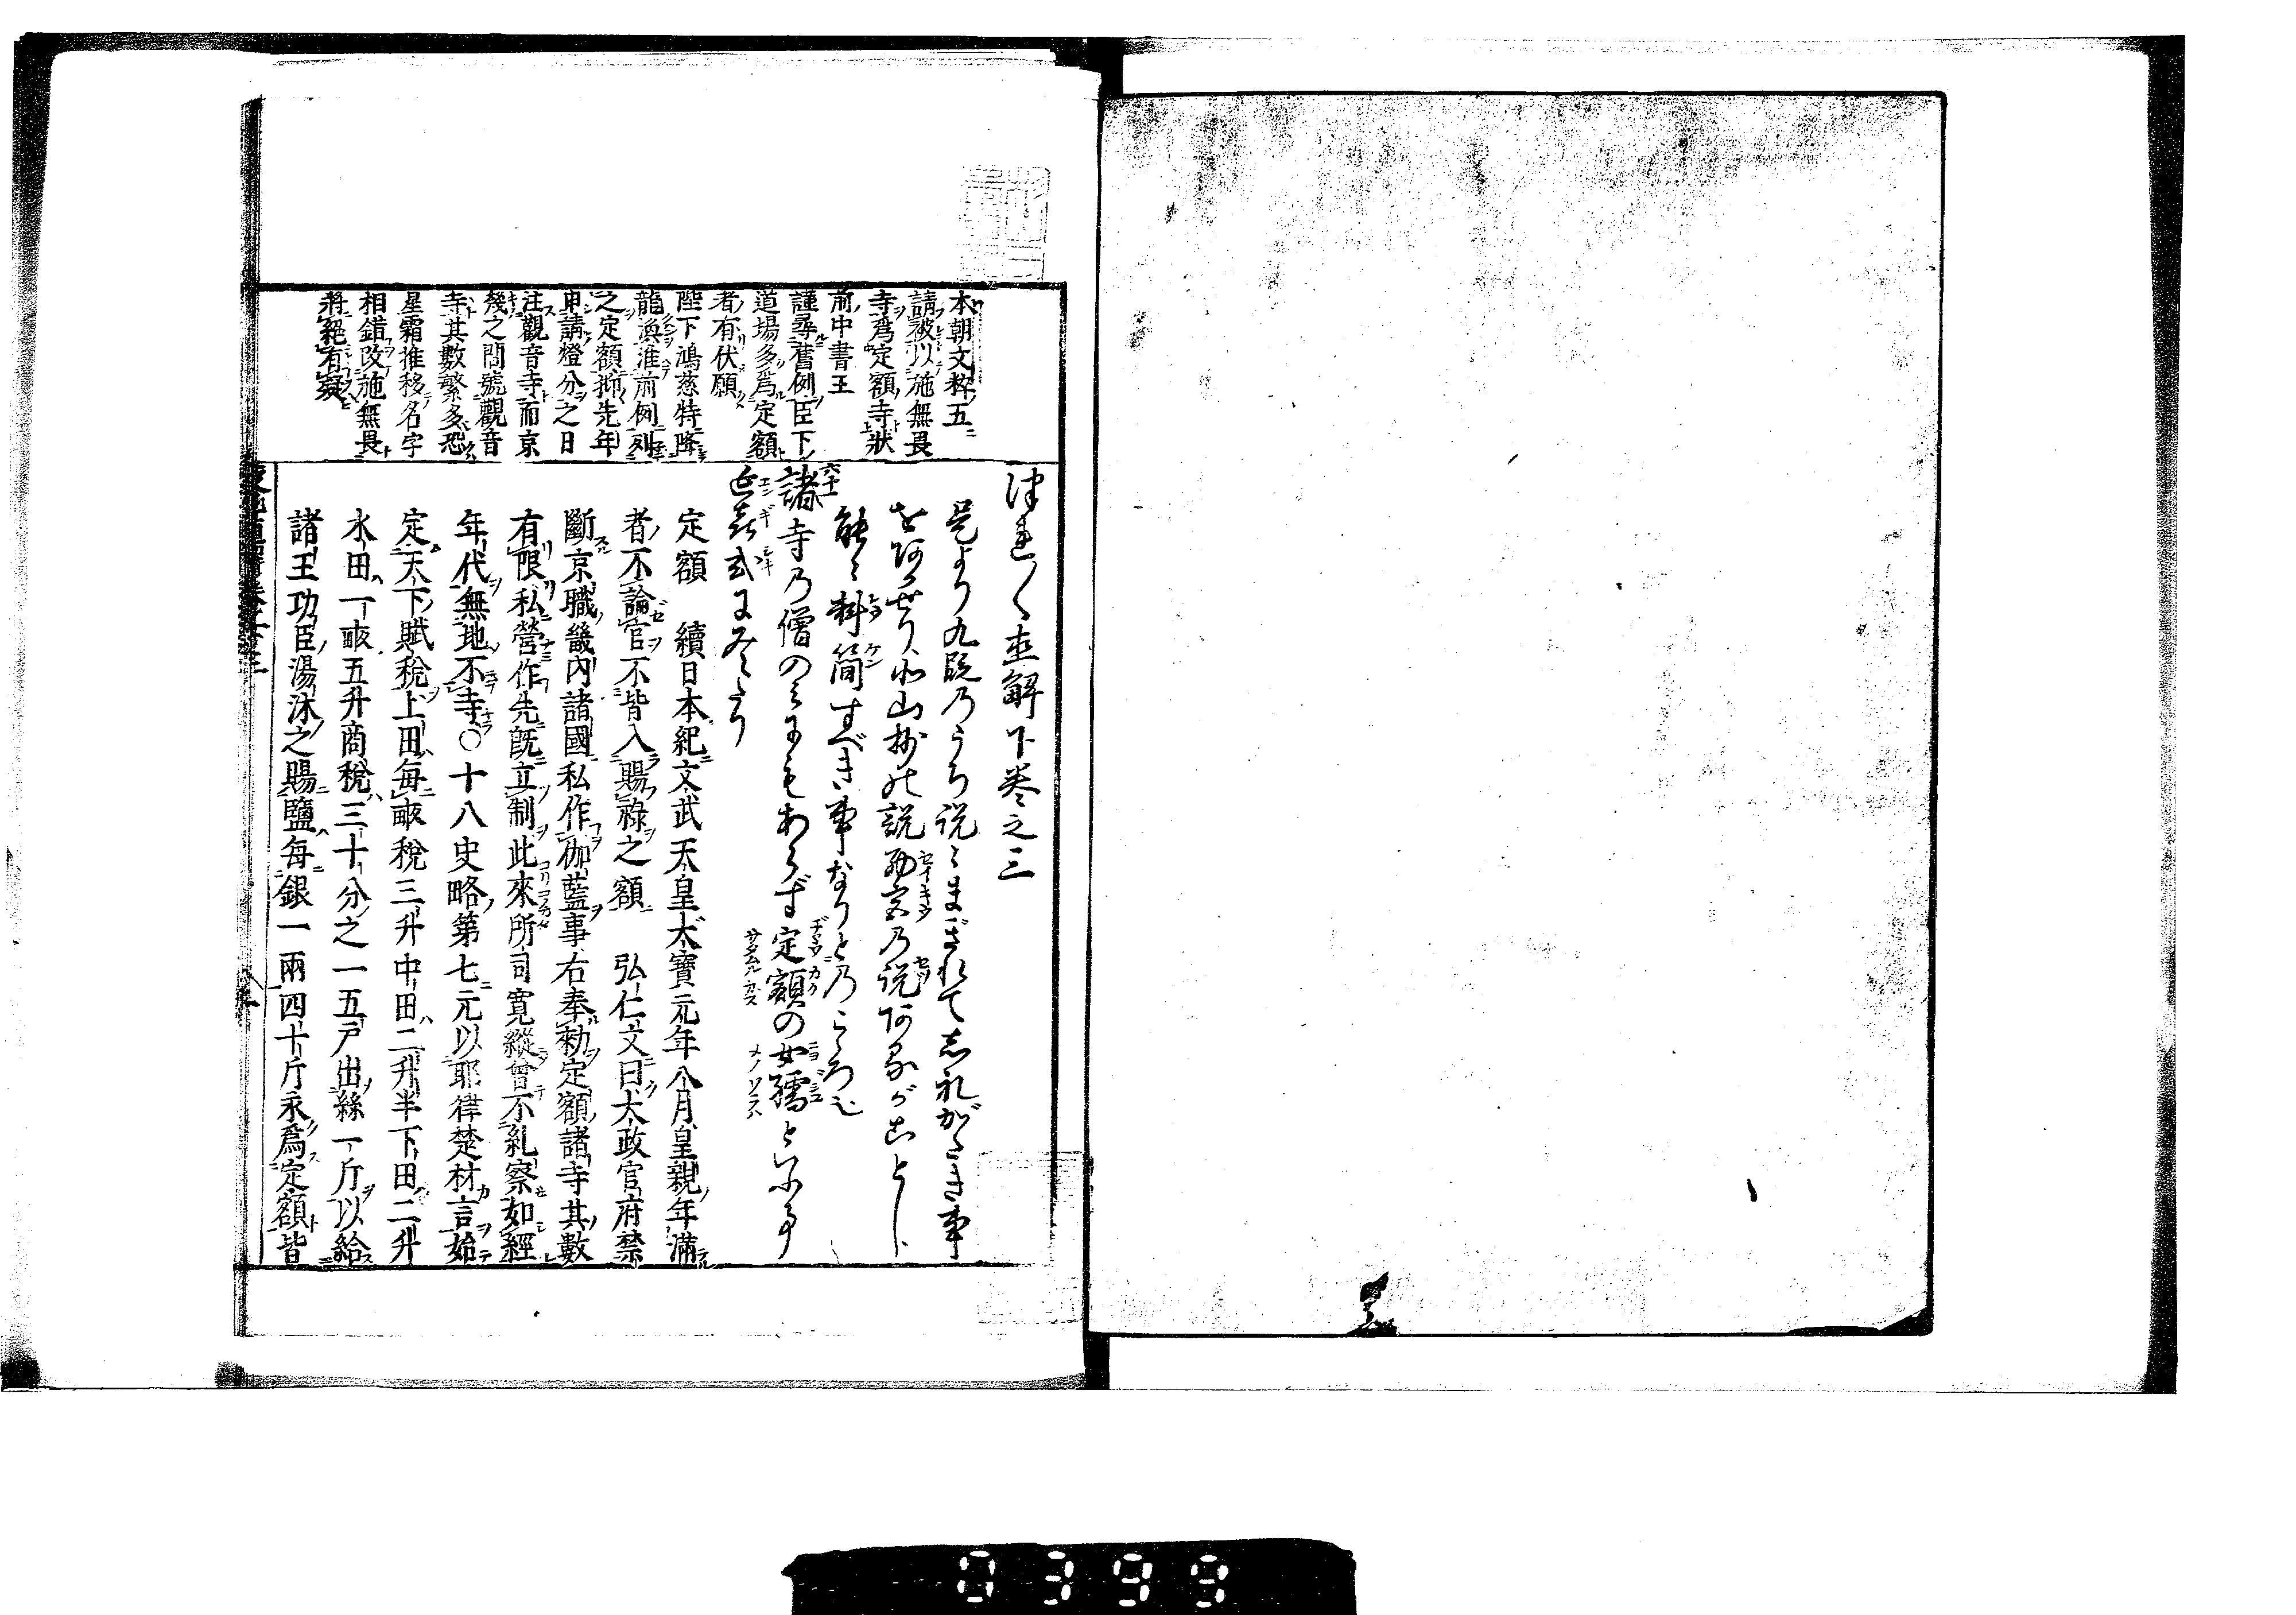 本朝文粹五
請被以施無畏
寺爲定額寺狀
前中書王
謹尋舊例臣下
道場多爲定額
者有伏願
陛下鴻慈特降
龍渙准前例列
之定額抑先年
申請燈分之日
注觀音寺而京
幾之間號觀音
寺其數繁多恐
星霜推移名字
相錯改施無畏
將絕有疑
つれ〱直解下巻之三
是より九段のうち説〻まぎれて志れがたき事
能〻料簡すべき事なりとのこゝろ也
六十一
諸寺乃僧のみにもあらず定額の女孺といふ事
延喜式にみえたり
定額 續日本紀文武天皇大寶元年八月皇親年滿
者不論官不皆入賜祿之額 弘仁文曰太政官府禁
斷京職畿內諸國私作伽藍事右奉勅定額諸寺其數
有限私營作先既立制此來所司寬縱曾不糺察如經
年代無地不寺○十八史略第七元以耶律楚材言始
定天下賦稅上田每畝稅三升中田二升半下田二升
水田一畝五升商稅三十分之一五戸出絲一斤以給
諸王功臣湯沐之賜鹽每銀一兩四十斤永爲定額皆
0399